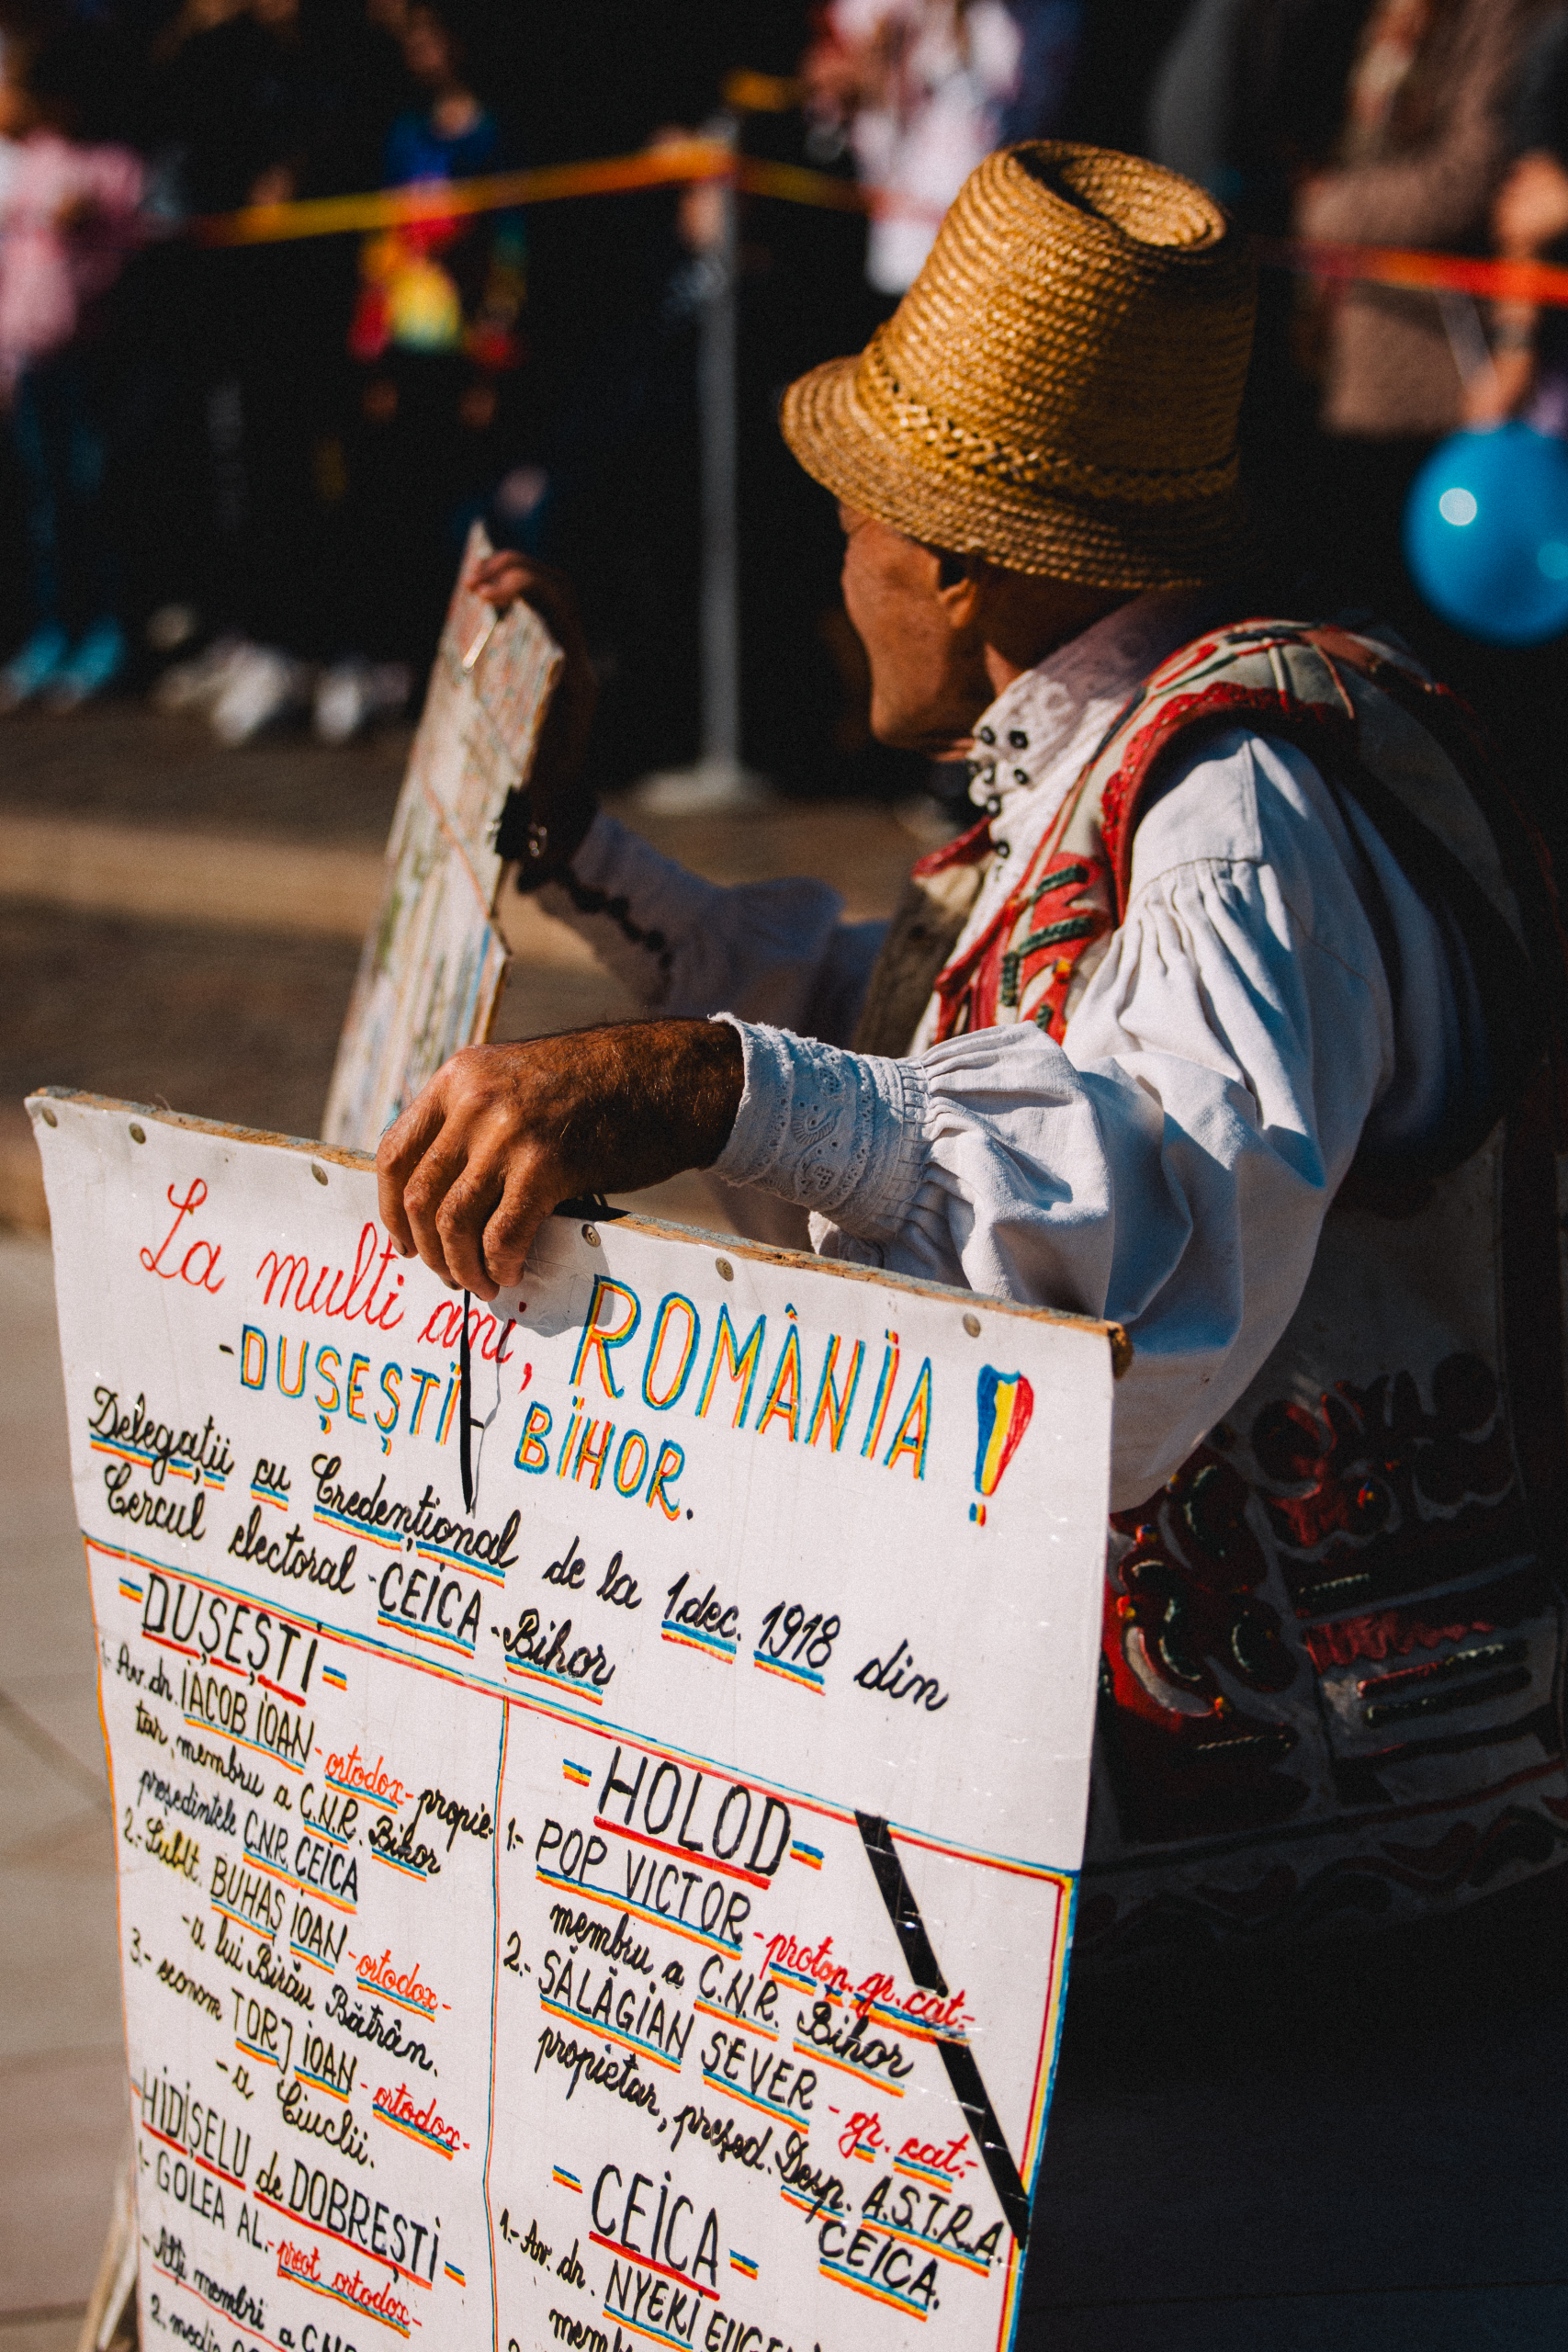 La multi ani, ROMÂNIA!
-DUȘEȘTI- BIHOR.
Delegații cu Credențional de la 1 dec. 1918 din
Cercul electoral -CEICA-Bihor
-DUȘEȘTI-
1.- Av. dr. IACOB IOAN-ortodox-propie-
tar, membru a C.N.R. Bihor
președintele C.N.R. CEICA
2.- Sublt. BUHAȘ IOAN-ortodox-
-a lui Birău Bătrân.
3.- econom TORJ IOAN-ortodox-
-a Ciuclii.
HIDIȘELU de DOBREȘTI-
1.- GOLEA AL.-preot ortodox-
- Alți membri a C.N.R.
2. medic
-HOLOD-
1.- POP VICTOR-protop. gr. cat-
membru a C.N.R. Bihor
2.- SĂLĂGIAN SEVER-gr. cat-
propietar, președ. Desp. A.S.T.R.A
CEICA.
-CEICA-
1.- Av. dr. NYEKI EUGEN